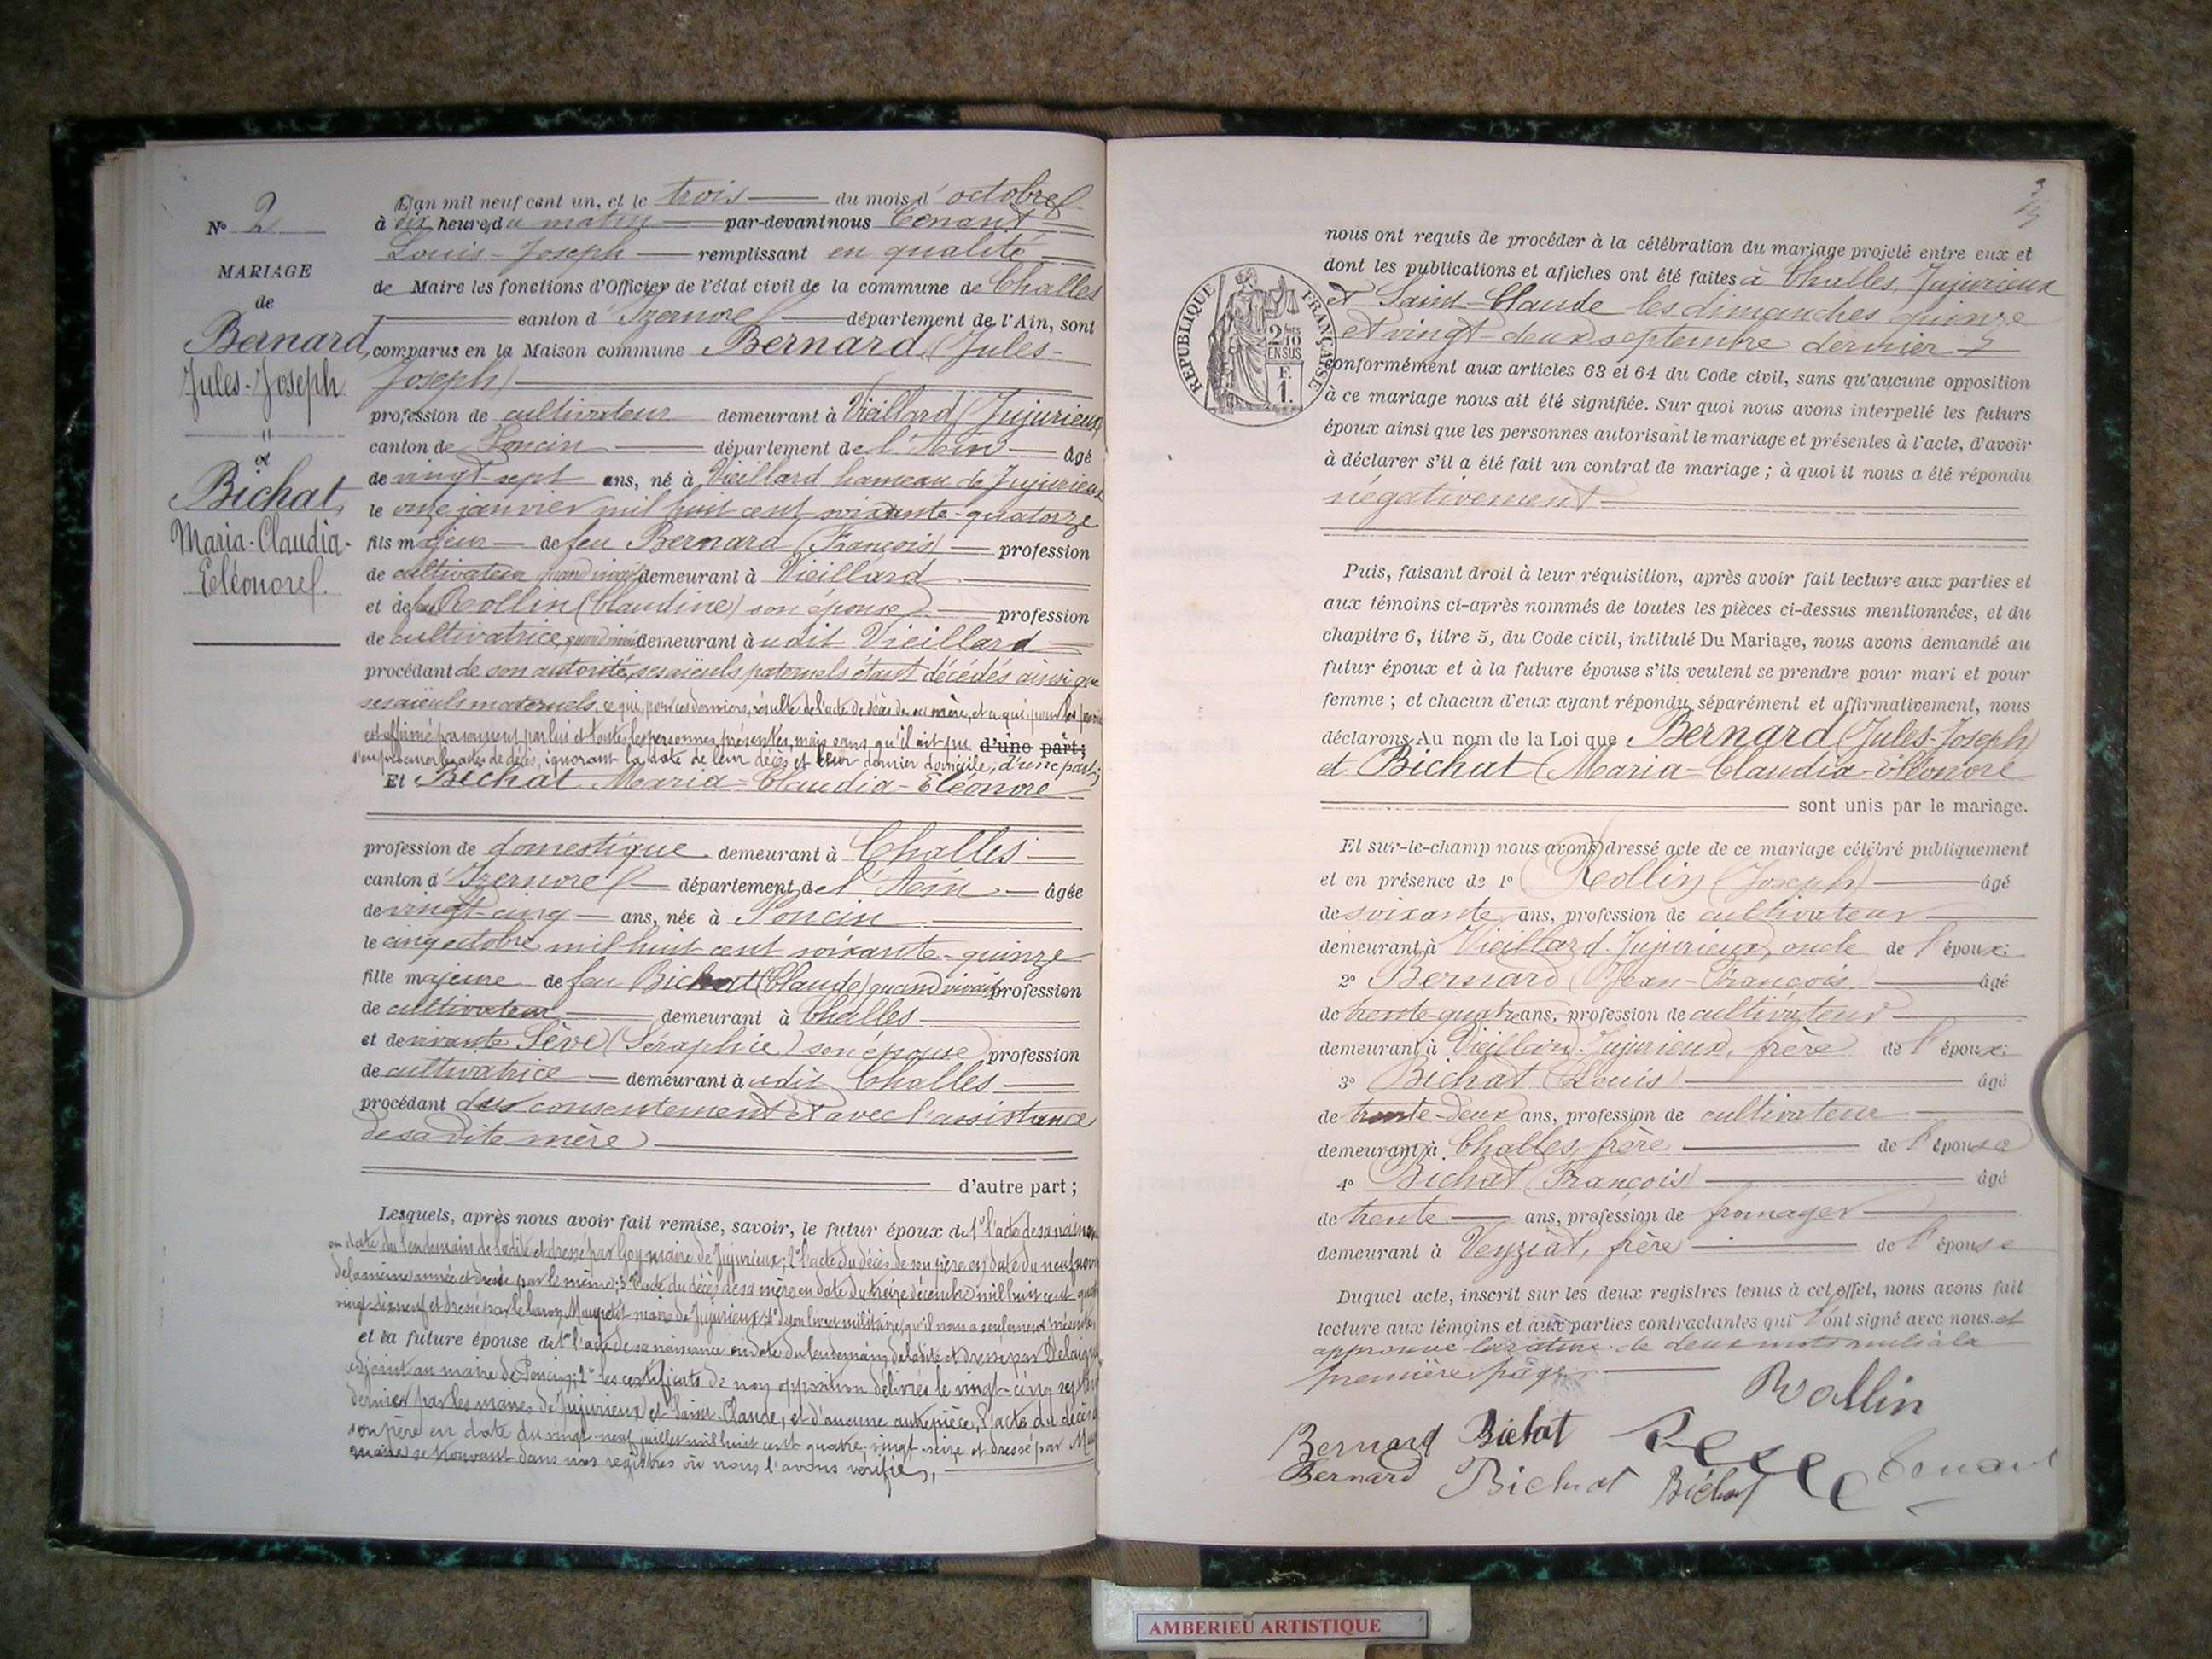 N° 2
MARIAGE
de
Bernard,
Jules-Joseph
et
Bichat,
Maria-Claudia-
Eléonore
L'an mil neuf cent un, et le trois du mois d'octobre
à dix heures du matin par-devant nous Tenant
Louis-Joseph remplissant en qualité
de Maire les fonctions d'Officier de l'état civil de la commune de Challes
canton d'Izernore département de l'Ain, sont
comparus en la Maison commune Bernard (Jules-
Joseph)
profession de cultivateur demeurant à Vieillard (Jujurieux)
canton de Poncin département de l'Ain âgé
de vingt-sept ans, né à Vieillard hameau de Jujurieux
le onze janvier mil huit cent soixante-quatorze
fils majeur de feu Bernard (François) profession
de cultivateur quand vivait demeurant à Vieillard
et de feu Rollin (Claudine) son épouse profession
de cultivatrice, quand vivait demeurant à udit Vieillard
procédant de son autorité, ses aïeuls paternels étant décédés ainsi que
ses aïeuls maternels, ce qui, pour ces derniers, résulte de l'acte de décès de sa mère, et ce qui, pour les
est affirmé par serment par lui et toutes les personnes présentes, mais sans qu'il ait pu d'une part;
s'en procurer les actes de décès, ignorant la date de leur décès et leur dernier domicile, d'une part;
Et Bichat Maria-Claudia-Eléonore
profession de domestique demeurant à Challes
canton d'Izernore département de l'Ain âgée
de vingt-cinq ans, née à Poncin
le cinq octobre mil huit cent soixante-quinze
fille majeure de feu Bichat (Claude) quand vivait profession
de cultivateur demeurant à Challes
et de vivante Sève (Séraphie) son épouse profession
de cultivatrice demeurant à udit Challes
procédant du consentement et avec l'assistance
de sa dite mère
d'autre part;
Lesquels, après nous avoir fait remise, savoir, le futur époux de 1° l'acte de sa naissance
en date du lendemain de ladite et dressé par Goy maire de Jujurieux; 2° l'acte du décès de son père en date du neuf
de la même année et dressé par le même; 3° l'acte du décès de sa mère en date du treize décembre mil huit cent
vingt-dix neuf et dressé par le baron maire de Jujurieux; 4° de son livret militaire qu'il nous a seulement
et la future épouse de 1° l'acte de sa naissance en date du lendemain de ladite et dressé par
adjoint au maire de Poncin; 2° les certificats de non opposition délivrés le vingt-cinq
dernier par les maires de Jujurieux et Saint-Claude, et d'aucune autre pièce, l'acte du décès
son père en date du vingt-neuf juillet mil huit cent quatre-vingt-seize et dressé par
maire se trouvant dans nos registres où nous l'avons vérifié,
nous ont requis de procéder à la célébration du mariage projeté entre eux et
dont les publications et affiches ont été faites à Challes, Jujurieux
et Saint-Claude les dimanches quinze
et vingt-deux septembre dernier
conformément aux articles 63 et 64 du Code civil, sans qu'aucune opposition
à ce mariage nous ait été signifiée. Sur quoi nous avons interpellé les futurs
époux ainsi que les personnes autorisant le mariage et présentes à l'acte, d'avoir
à déclarer s'il a été fait un contrat de mariage; à quoi il nous a été répondu
négativement
RÉPUBLIQUE FRANÇAISE
2/10
EN SUS
F.
1.
Puis, faisant droit à leur réquisition, après avoir fait lecture aux parties et
aux témoins ci-après nommés de toutes les pièces ci-dessus mentionnées, et du
chapitre 6, titre 5, du Code civil, intitulé Du Mariage, nous avons demandé au
futur époux et à la future épouse s'ils veulent se prendre pour mari et pour
femme; et chacun d'eux ayant répondu séparément et affirmativement, nous
déclarons Au nom de la Loi que Bernard (Jules-Joseph)
et Bichat (Maria-Claudia-Eléonore
sont unis par le mariage.
Et sur-le-champ nous avons dressé acte de ce mariage célébré publiquement
et en présence de 1° Rollin (Joseph) âgé
de soixante ans, profession de cultivateur
demeurant à Vieillard-Jujurieux, oncle de l'époux;
2° Bernard (Jean-François) âgé
de trente-quatre ans, profession de cultivateur
demeurant à Vieillard-Jujurieux, frère de l'époux;
3° Bichat (Louis) âgé
de trente-deux ans, profession de cultivateur
demeurant à Challes, frère de l'épouse
4° Bichat (François) âgé
de trente ans, profession de fromager
demeurant à Veyziat, frère de l'épouse
Duquel acte, inscrit sur les deux registres tenus à cet effet, nous avons fait
lecture aux témoins et aux parties contractantes qui l'ont signé avec nous et
approuvé la rature de deux mots nuls à la
première page
Rollin
Bernard Bichat
Bernard Bichat Bichat
AMBERIEU ARTISTIQUE